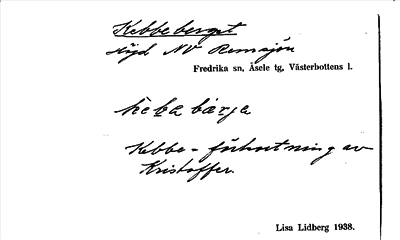 Kebbeberget
Höjd NV Remsjön
Fredrika sn, Åsele tg, Västerbottens l.
Kebbe - förkortning av
Kristoffer.
Lisa Lidberg 1938.